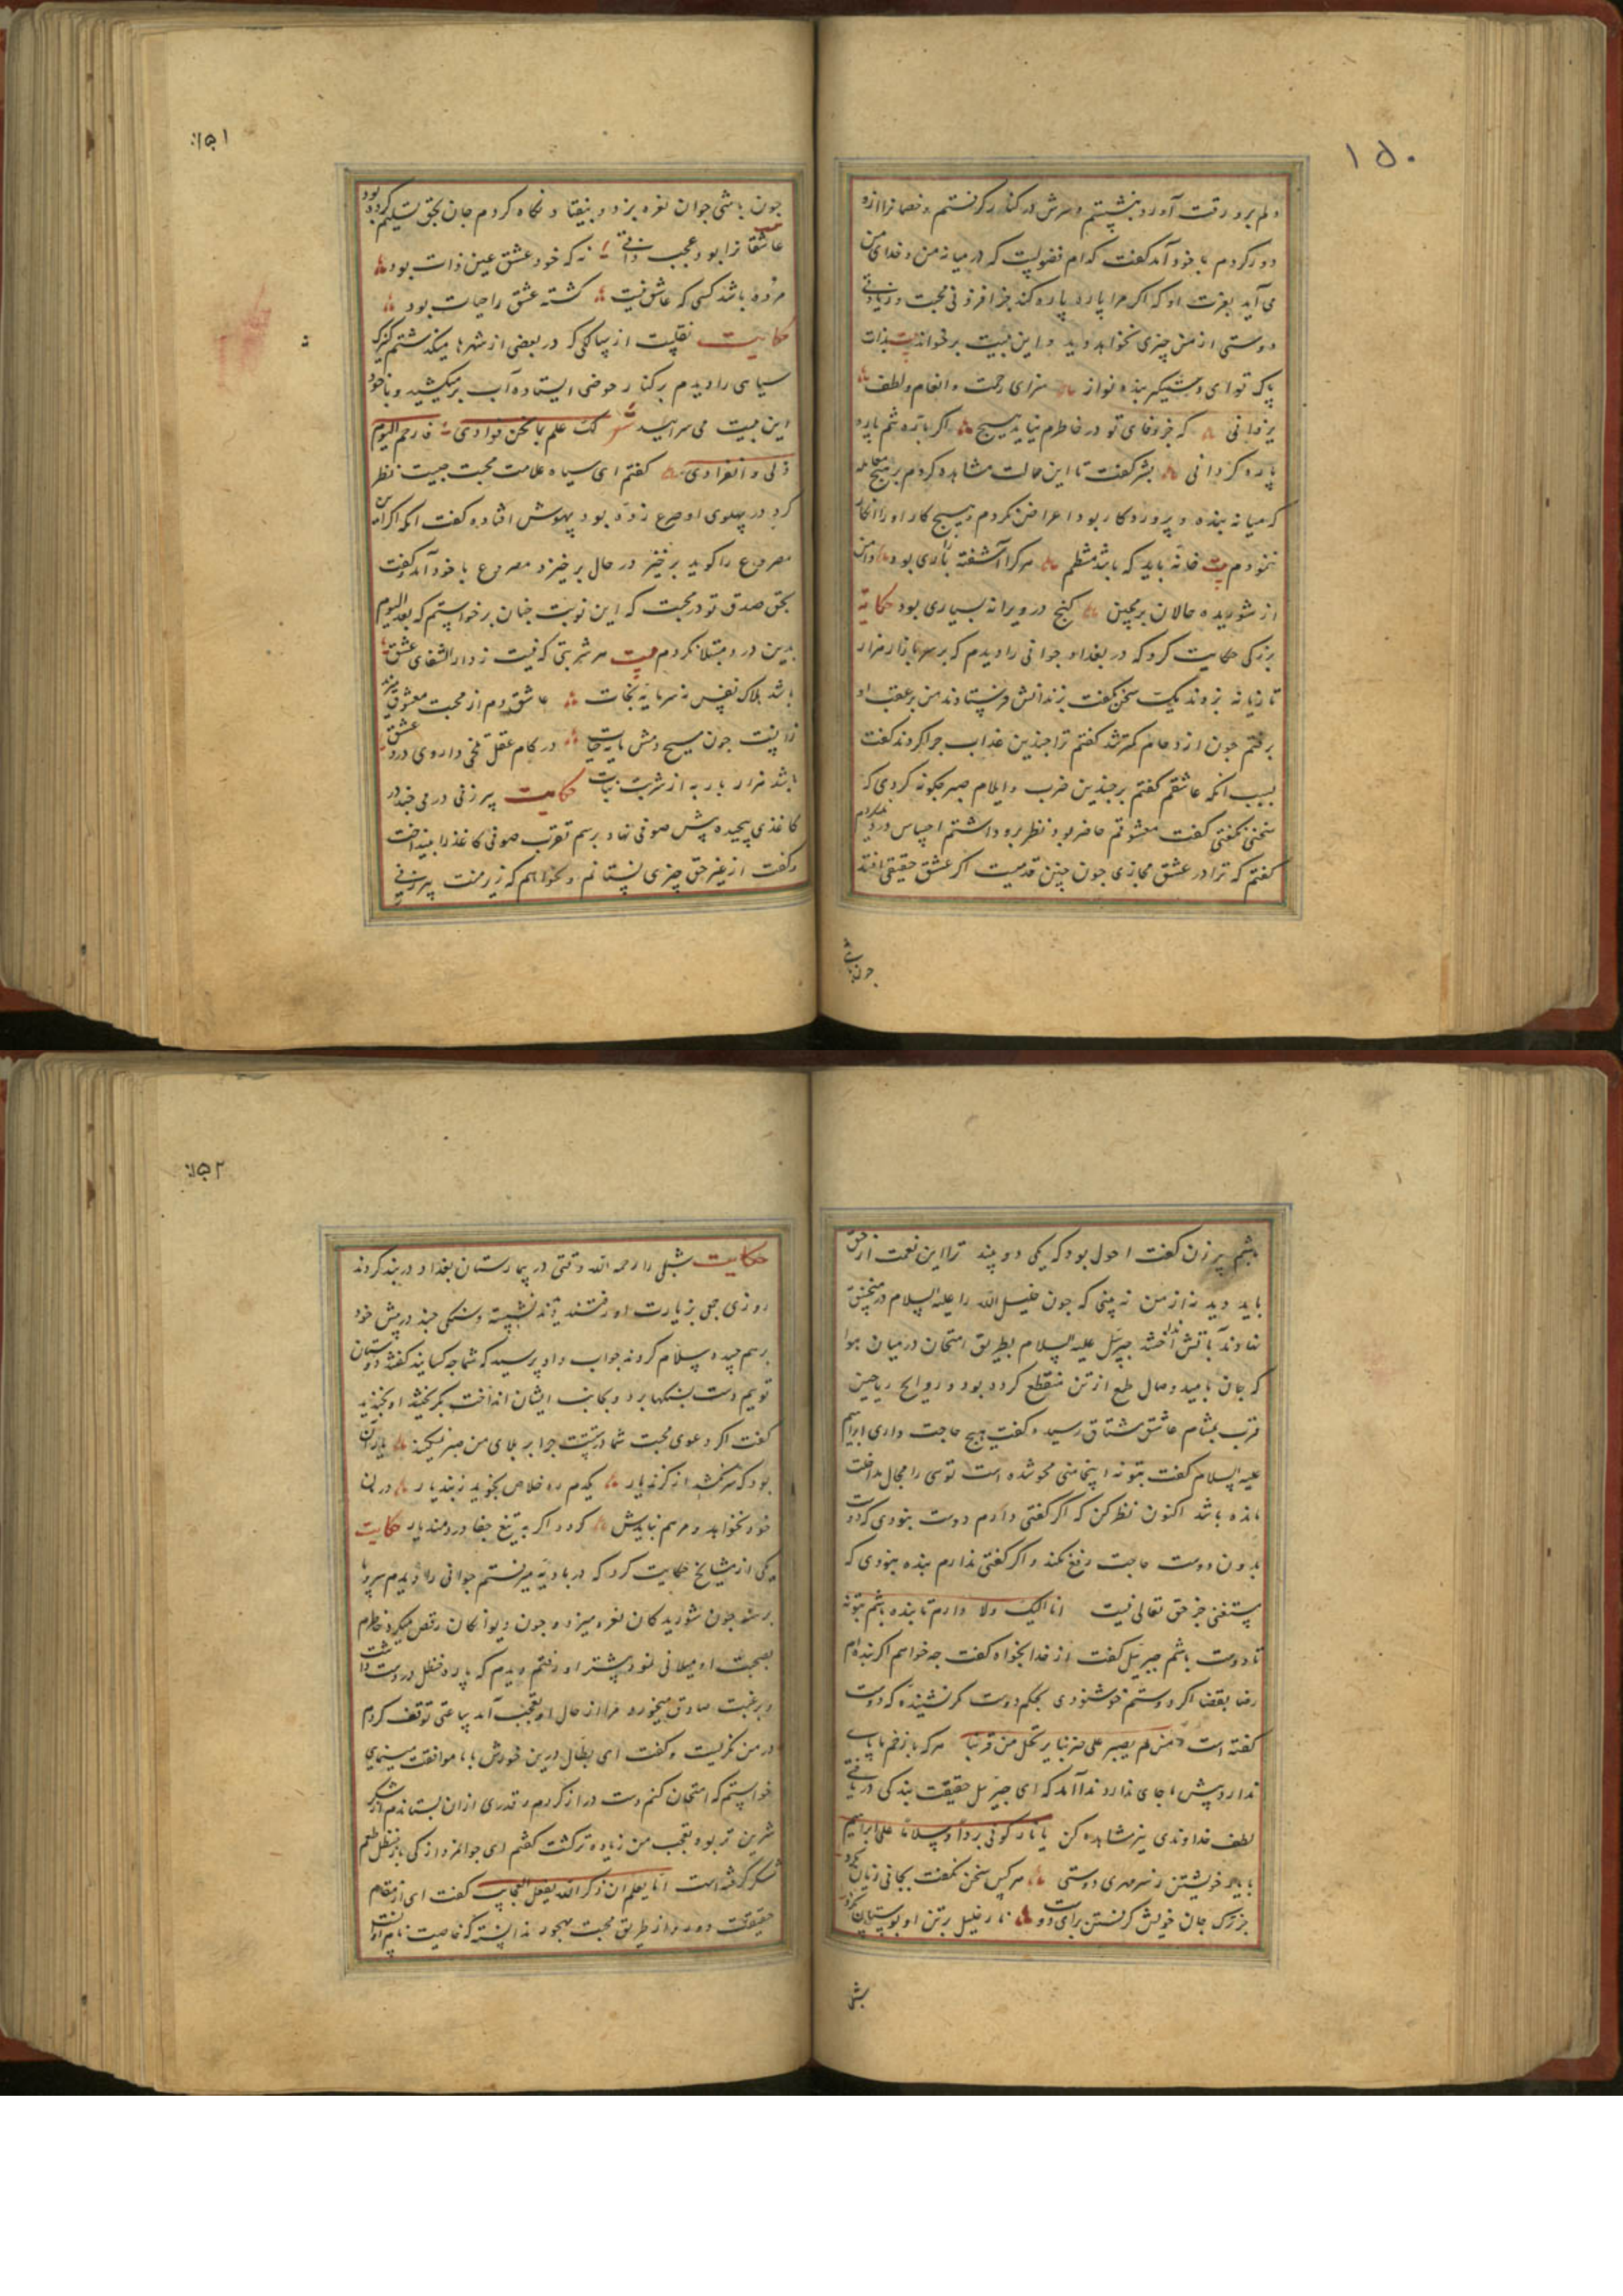 ۱۵۰
دلم برو رقت آورد بنشستم و سرش در کنار گرفتم و خصمانرا ازو
دور کردم با خود آمد گفت کدام فضولیست که در میانه من و خدای من
می آید بعزت او که اکر مرا پاره پاره کند جز افزونی محبت و زیادتی
دوستی از من چیزی نخواهد دید و این بیت بر خواند بیت بذات
پاک تو ای دستگیر بنده نواز سزای رحمت و انعام و لطف
یزدانی که جز وفای تو در خاطرم نیاید هیچ اکر باره تنم پاره
پاره کردانی بشر گفت تا این حالت مشاهده کردم بر هیچ معامله
که میانه بنده و پروردکار بود اعراض نکردم و هیچ کار او را انکار
ننمودم بیت خانه باید که باشد منتظم هر کرا آشفته یاری بود دامن
از شوریده حالان بر مچین کنج در ویرانه بسیاری بود حکایة
بزرکی حکایت کرد که در بغداد جوانی را دیدم که بر سر بازار هزار
تازیانه بزدند یک سخن نگفت بزندانش فرستادند من بر عقب او
برفتم چون ازدحام کمتر شد گفتم ترا چندین عذاب چرا کردند گفت
بسبب انکه عاشقم گفتم بر چندین ضرب و ایلام صبر چکونه کردی که
سخنی نگفتی گفت معشوقم حاضر بود نظر برو داشتم احساس درد نکردم
گفتم که ترا در عشق مجازی چون چنین قدمیست اکر عشق حقیقی افتد
چون باشی
۱۵۱
چون باشی جوان نعره بزد و بیفتاد نکاه کردم جان بحق تسلیم کرده بود
عاشقانرا بود عجب ذاتی نه که خود عشق عین ذات بود
مرده باشد کسی که عاشق نیست کشته عشق را حیات بود
حکایت نقلست از سالکی که در بعضی از شهرها میکذشتم کنیزک
سیاهی را دیدم بر کنار حوضی ایستاده آب بر میکشید و با خود
این بیت می سرایید شعر لک علم بما یجن فوادی فارحم الیوم
ذلی و انفرادی گفتم ای سیاه علامت محبت چیست نظر
کرد در پهلوی او صرع زده بود بیهوش افتاده گفت انکه اکر این
مصروع را کوید برخیز در حال برخیزد مصروع با خود آمد و گفت
بحق صدق تو در محبت که این نوبت چنان برخواستم که بعد الیوم
بدین درد مبتلا نکردم بیت هر شربتی که نیست ز دار الشفای عشق
باشد هلاک نفس نه سرمایه نجات عاشق دم از محبت معشوق میزند
زانست چون مسیح دمش مایه حیات در کام عقل تلخی داروی درد عشق
باشد هزار بار به از شربت نبات حکایت پیرزنی درمی چند در
کاغذی پیچیده پیش صوفی نهاد برسم تقرب صوفی کاغذ را بینداخت
و گفت از غیر حق چیزی نستانم و نخواهم که زیر منت پیرزنی
باشم پیر زن گفت احول بود که یکی دو بیند ترا این نعمت از حق
باید دید نه از من نه بینی که چون خلیل الله را علیه السلام در منجنیق
نهادند تا باتش اندازند جبرئیل علیه السلام بطریق امتحان در میان هوا
که جان بامید وصال طمع از تن منقطع کرده بود و روایح ریاحین
قرب بمشام عاشق مشتاق رسید و گفت هیچ حاجت داری ابراهیم
علیه السلام گفت بتو نه اینجا منی محو شده است توسی را مجال مداخلت
مانده باشد اکنون نظر کن که اکر گفتی دارم دوست نبودی که دوست
بدون دوست حاجت رفع نکند و اکر گفتی ندارم بنده نبودی که
مستغنی جز حق تعالی نیست اما الیک و لا دارم تا بنده باشم بتو نه
تا دوست باشم جبرئیل گفت از خدا بخواه گفت چه خواهم اکر بنده ام
رضا بقضا اکر دوستم خوشنودی بحکم دوست مکر نشنیده که دوست
گفته است من لم یصبر علی ضربنا یرتحل من قربنا هر که با زخم ما پای
ندارد پیش ما جای ندارد ندا آمد که ای جبرئیل حقیقت بندکی دریافتی
لطف خداوندی نیز مشاهده کن یا نار کونی بردا و سلاما علی ابراهیم
با یار خویشتن ز سر دوستی هر کس سخن نگفت بجانی زیان نکرد
جز ترک جان خویش کرفتن برای دوست نار خلیل بر تن او بوستان نکرد
شبلی
۱۵۲
حکایت شبلی را رحمه الله وقتی در بیمارستان بغداد در بند کردند
روزی جمعی بزیارت او رفتند دیدند نشسته و سنکی چند در پیش خود
برهم چیده سلام کردند جواب داد پرسید که شما چه کسانید گفتند دوستان
توییم دست بسنکها برد و بجانب ایشان انداخت بگریختند او بخندید
گفت اکر دعوی محبت شما درستست چرا بر بلای من صبر نمیکنید یار آن
بود که سر نکشد از کزند یار یکدم ره خلاص نجوید ز بند یار درمان
خود نخواهد و مرهم نبایدش کردد اکر به تیغ جفا دردمند یار حکایت
یکی از مشایخ حکایت کرد که در بادیه میرفتم جوانی را دیدم سر و پا
برهنه چون شوریدکان نعره میزد و چون دیوانکان رقص میکرد خاطرم
بصحبت او میلانی نمود پیشتر او رفتم دیدم که پاره حنظل در دست داشت
و برغبت صادق میخورد مرا از حال او تعجب آمد ساعتی توقف کردم
در من نکریست و گفت ای بطال درین خورش با ما موافقت مینمایی
خواستم که امتحان کنم دست دراز کردم و قدری ازان بستاندم از شکر
شیرین تر بود تعجب من زیاده تر کشت گفتم ای جوانمرد از کی باز حنظل طعم
شکر کرفته است اما یعلم ان ذکر الله یفعل العجایب گفت ای از مقام
حقیقت دور و از طریق محبت مهجور ندانسته که خاصیت نام او آنست